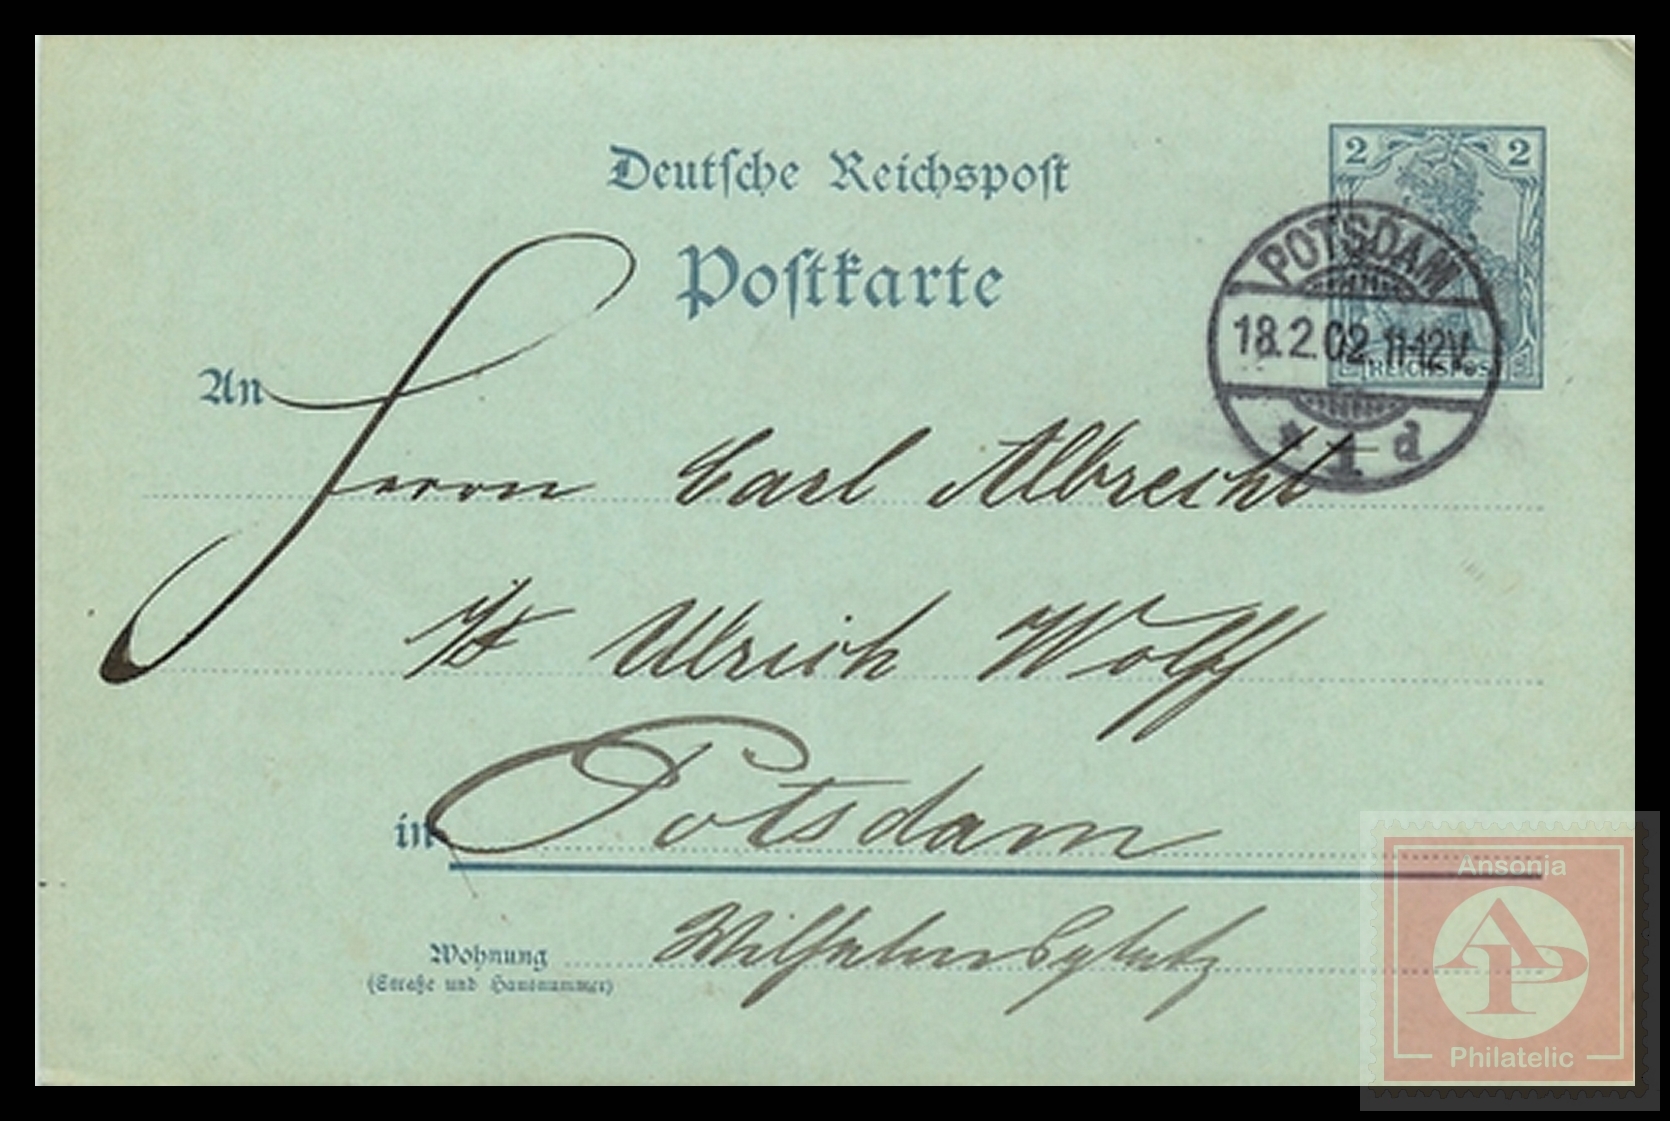 Deutsche Reichspost
Postkarte
2 2
REICHSPOST
POTSDAM
18.2.02.11-12V.
* 1 d
An Herrn Carl Albrecht
Ulrich Wolff
in Potsdam
Wohnung Wilhelms
(Straße und Hausnummer)
Ansonia
AP
Philatelic